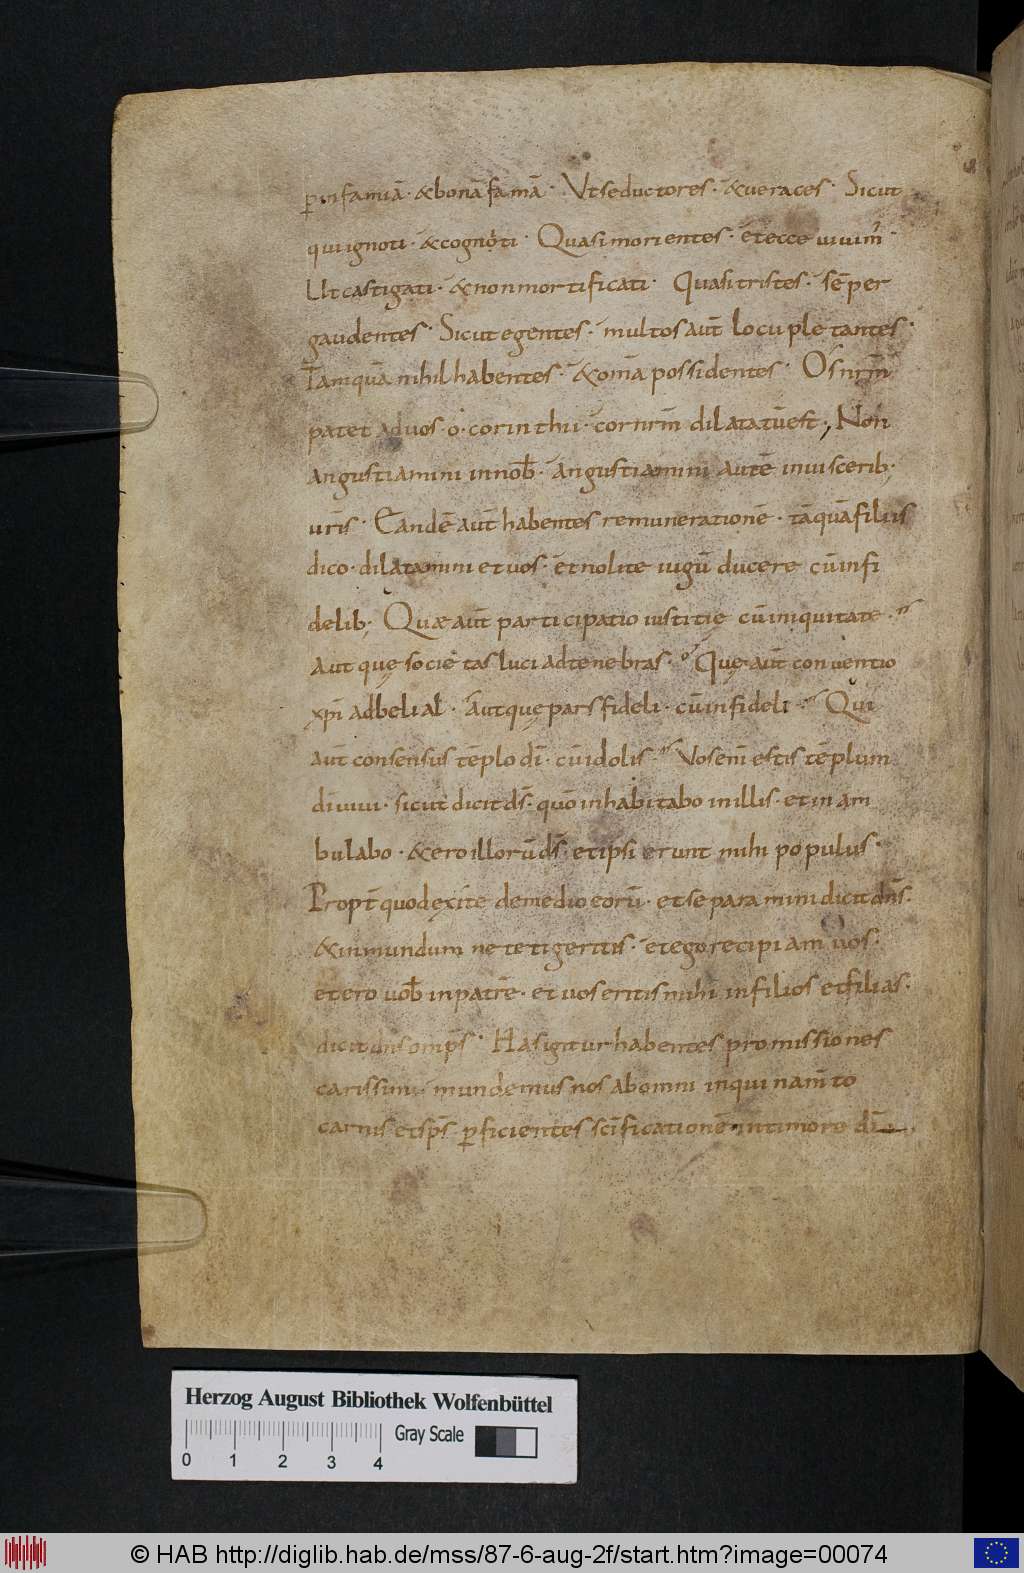 p̱ infamiā · &bonā famā · Vt seductores · &ueraces · Sicut
qui ignoti · &cognoti · Quasi morientes · et ecce uiuim̄ ·
Ut castigati · &non mortificati · Quasi tristes · sēper
gaudentes · Sicut egentes · multos aut̄ locupletantes ·
Tamquā nihil habentes · &om̄a possidentes · Os nrm̄
patet ad uos · o · corinthii · cor nrm̄ dilatatū est ; Non
angustiamini in nob̄ · angustiamini autē in uiscerib;
uris̄ · Eandē aut̄ habentes remunerationē · tāquā filiis
dico · dilatamini et uos · et nolite iugū ducere cū infi
delib; Quae aut̄ participatio iustitię cū iniquitate ·
Aut quę societas luci ad tenebras · Quę aut̄ conuentio
xp̄i ad belial · Aut quę pars fideli · cū infideli · Qui
aut̄ consensus tēplo dī · cū idolis · Vos enī estis tēplum
dī uiui · sicut dicit ds̄ · quō inhabitabo in illis · et inam
bulabo · &ero illorū ds̄ · et ipsi erunt mihi populus ·
Propt̄ quod exite de medio eorū · et separamini dicit dns̄ ·
&inmundum ne tetigeritis · et ego recipiam uos ·
et ero uob̄ in patrē · et uos eritis mihi in filios et filias ·
dicit dns̄ omp̄s · Has igitur habentes promissiones
carissimi · mundemus nos ab omni inquinam̄to
carnis et sp̄s p̱ficientes sc̄ificationē in timore dī
Herzog August Bibliothek Wolfenbüttel
Gray Scale
0 1 2 3 4
© HAB http://diglib.hab.de/mss/87-6-aug-2f/start.htm?image=00074